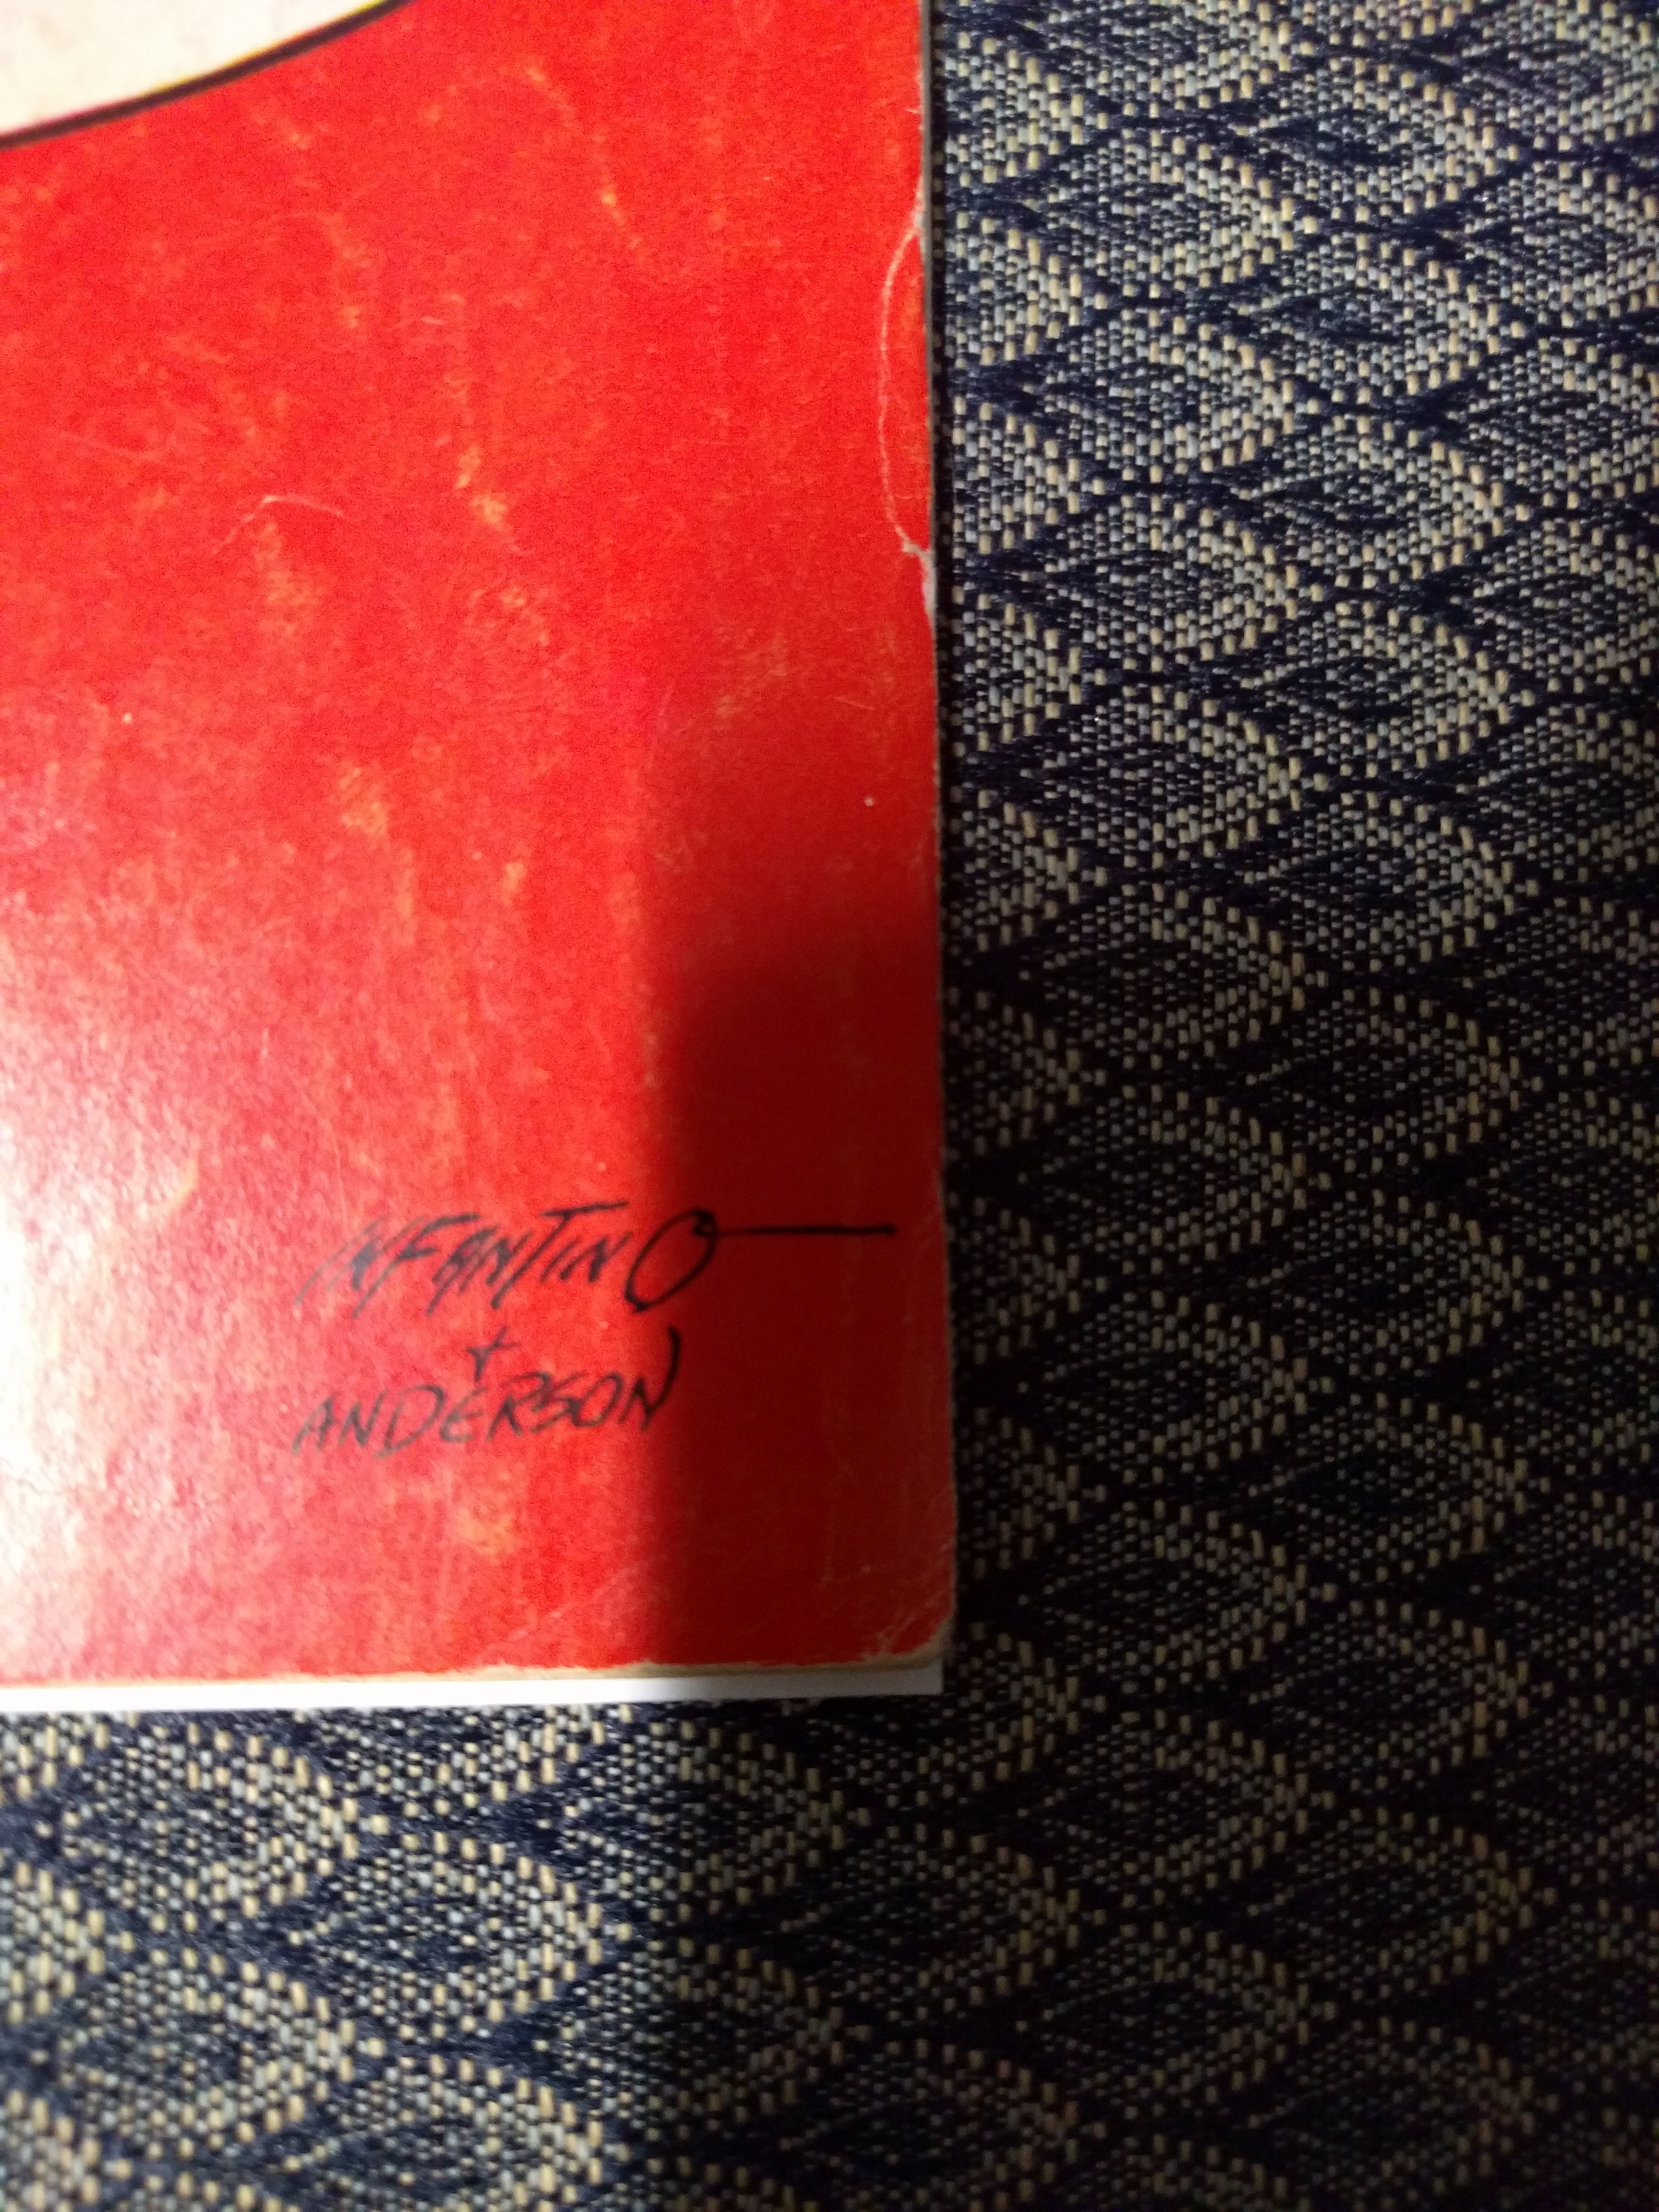 INFANTINO
+
ANDERSON